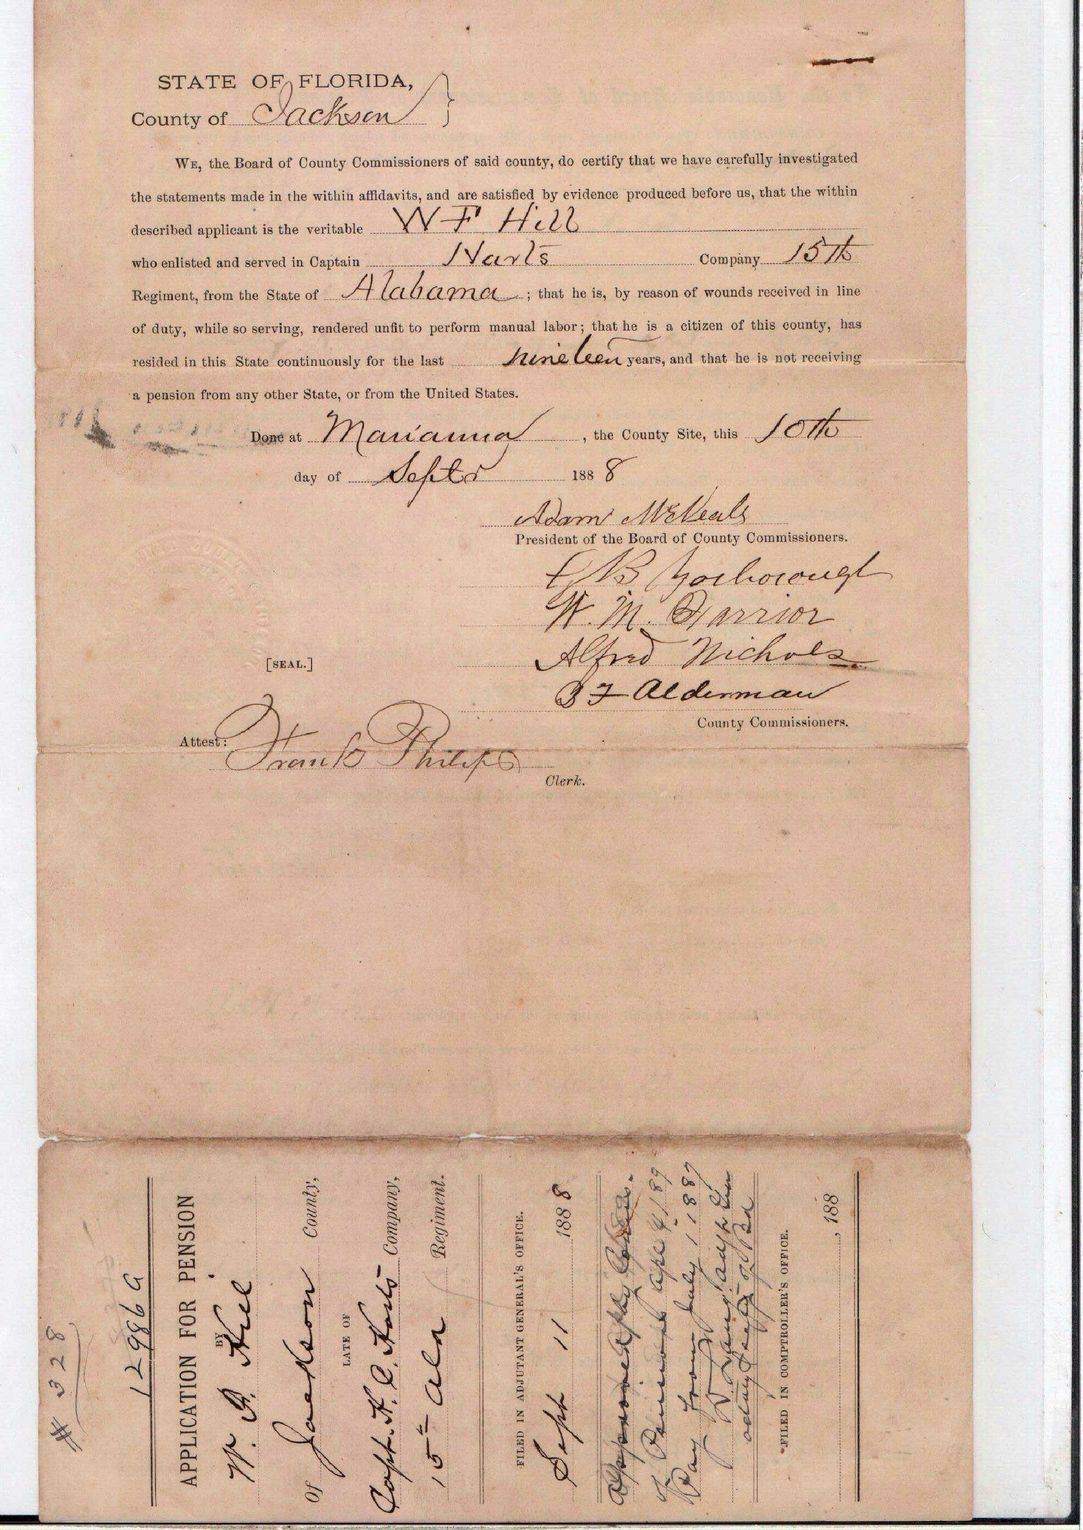 STATE OF FLORIDA,
County of Jackson
WE, the Board of County Commissioners of said county, do certify that we have carefully investigated
the statements made in the within affidavits, and are satisfied by evidence produced before us, that the within
described applicant is the veritable W F Hill
who enlisted and served in Captain Harts Company 15th
Regiment, from the State of Alabama ; that he is, by reason of wounds received in line
of duty, while so serving, rendered unfit to perform manual labor; that he is a citizen of this county, has
resided in this State continuously for the last nineteen years, and that he is not receiving
a pension from any other State, or from the United States.
Done at Marianna , the County Site, this 10th
day of Septr 1888
Adam McNeals
President of the Board of County Commissioners.
B Yorborough
W. M. Farrior
Alfred Nichols
B F Alderman
County Commissioners.
[SEAL.]
Attest: Frank Philips
Clerk.
# 328
12986 G
APPLICATION FOR PENSION
BY
W. F. Hill
Of Jackson County,
LATE OF
Capt. H. C. Harts Company,
15th Ala Regiment.
FILED IN ADJUTANT GENERAL'S OFFICE.
Sept 11 1888
Approved by
of Pensions Apl 4, 1889
Pay from July 1, 1887
D. Lang, Adjt Gen
FILED IN COMPTROLLER'S OFFICE.
, 188